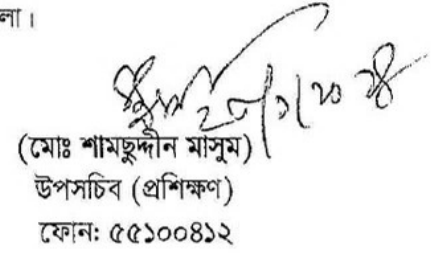 লা।
(মোঃ শামছুদ্দীন মাসুম)
উপসচিব (প্রশিক্ষণ)
ফোন: ৫৫১০০৪১২